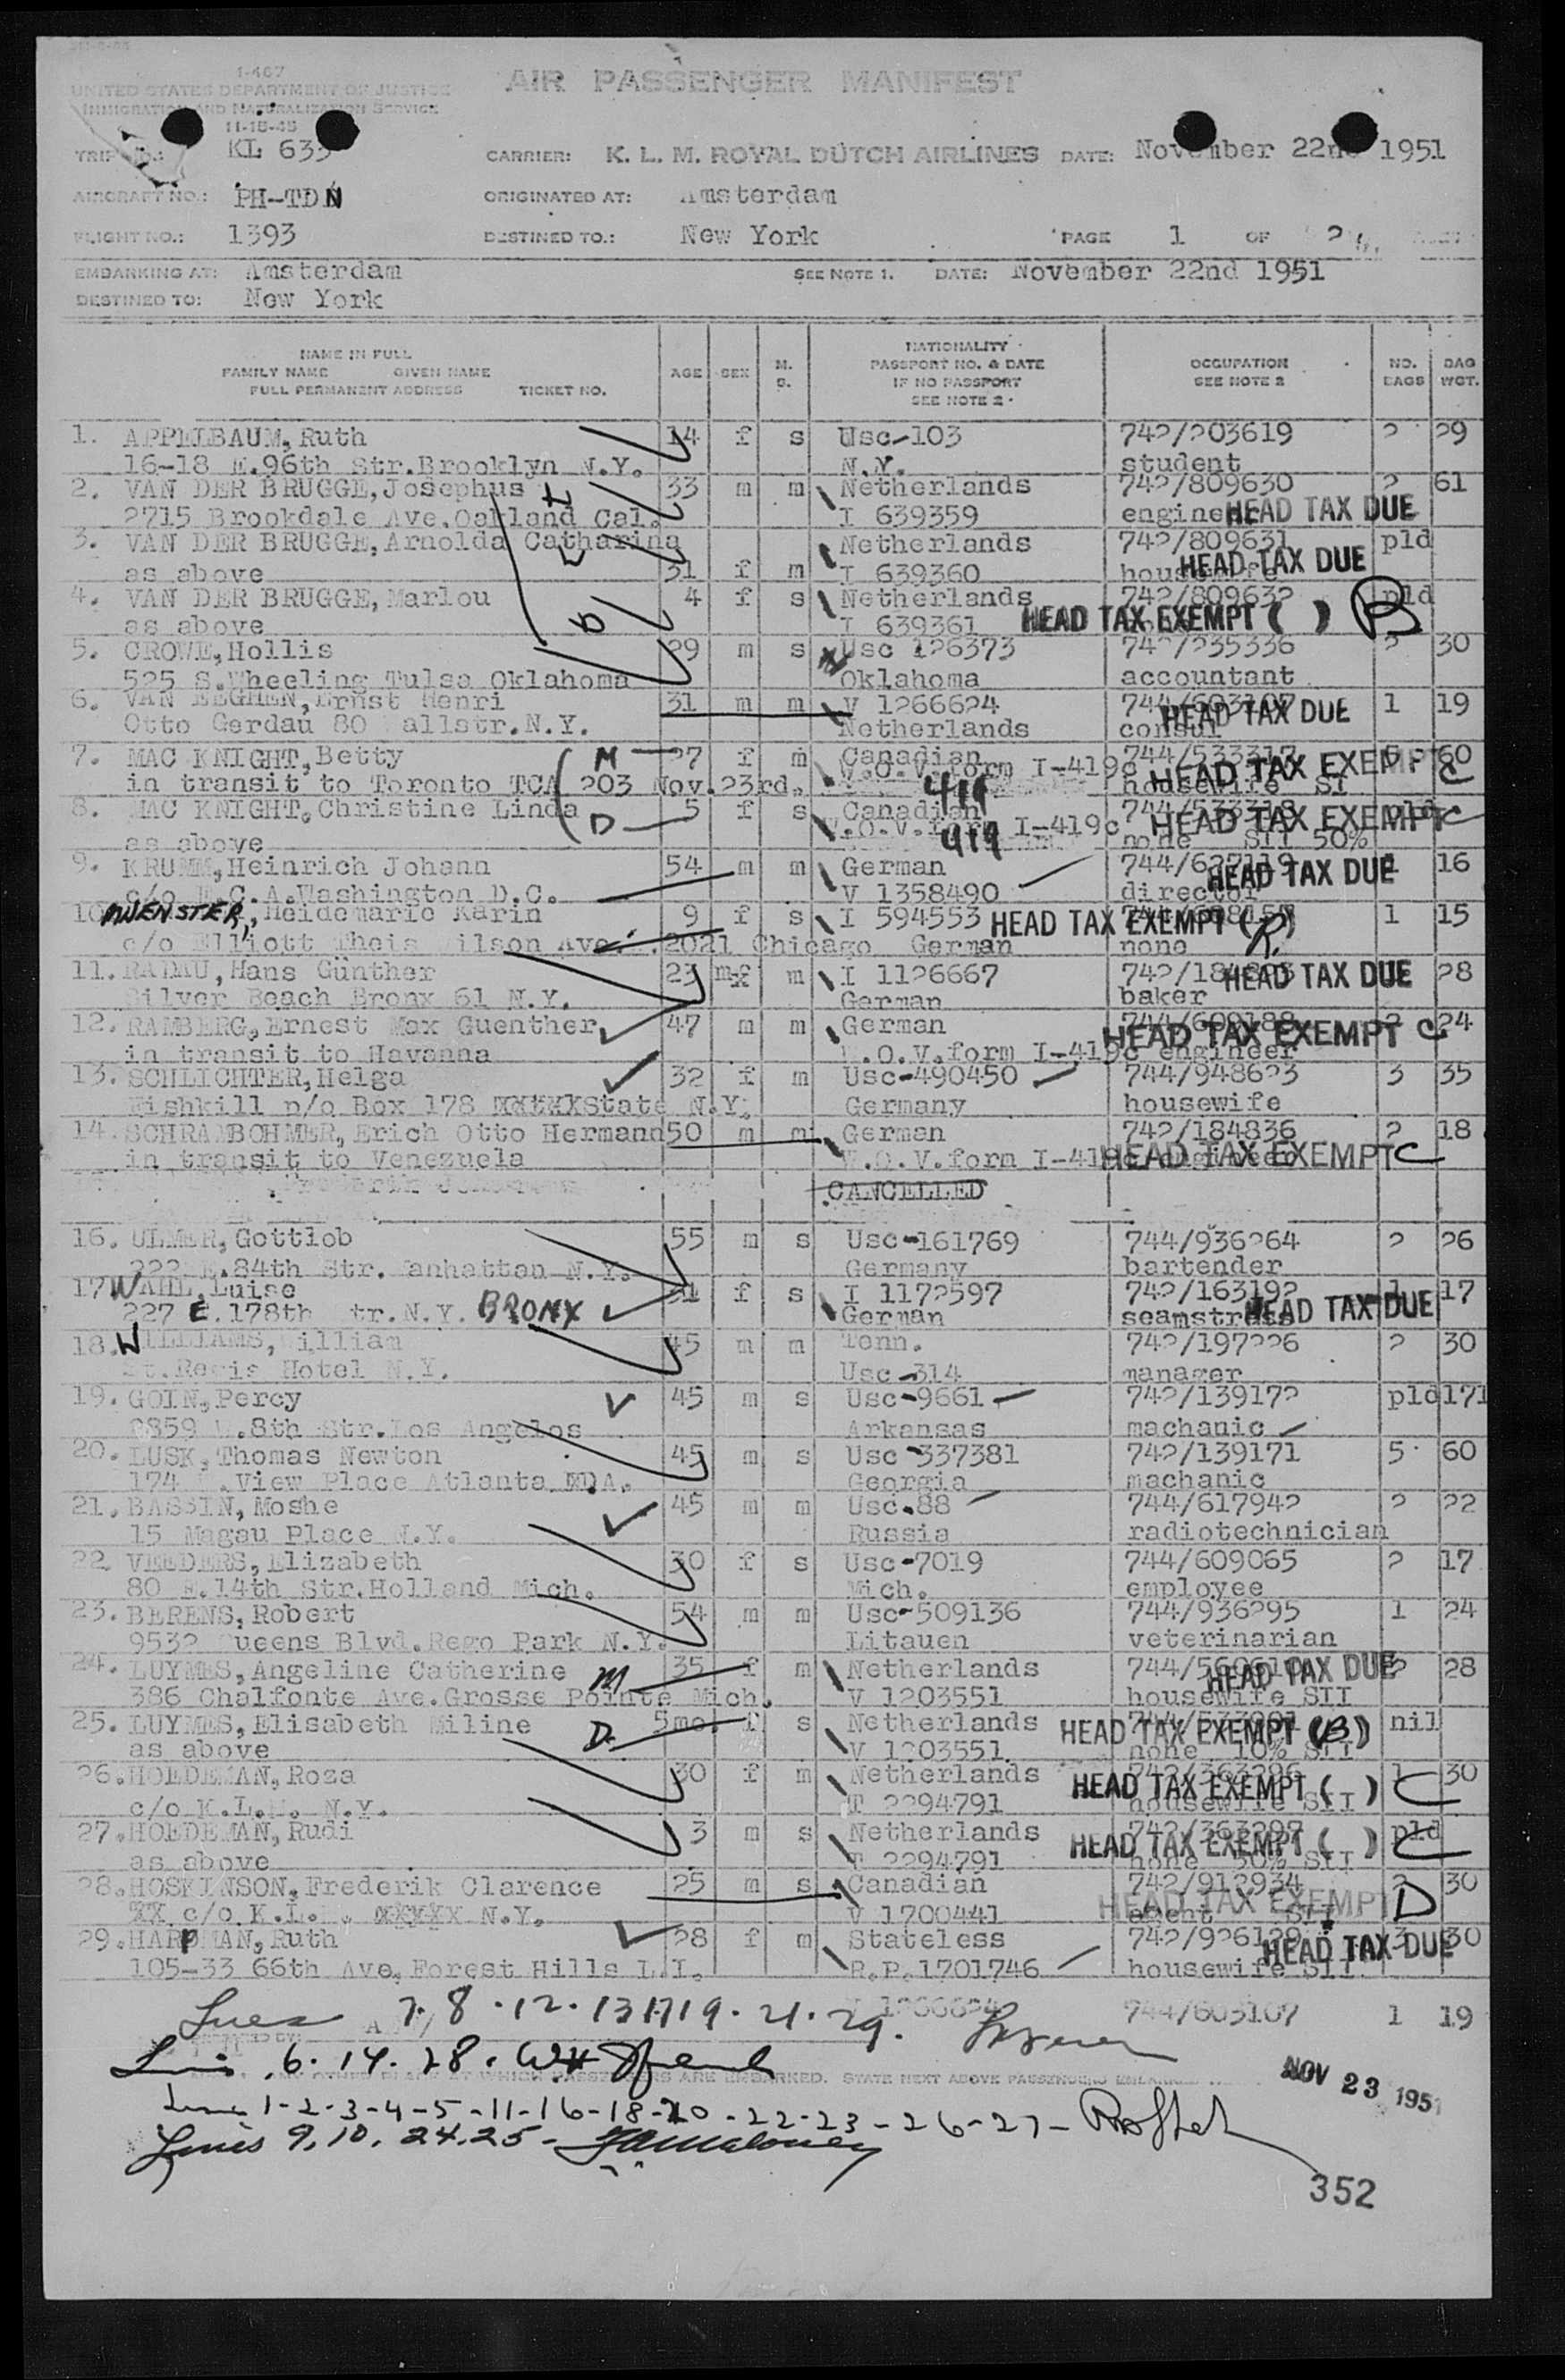 I-467
UNITED STATES DEPARTMENT OF JUSTICE
IMMIGRATION AND NATURALIZATION SERVICE
11-15-45
AIR PASSENGER MANIFEST
TRIP NO.: KL 633 CARRIER: K. L. M. ROYAL DUTCH AIRLINES DATE: November 22nd 1951
AIRCRAFT NO.: PH-TDN ORIGINATED AT: Amsterdam
FLIGHT NO.: 1393 DESTINED TO.: New York PAGE 1 OF 2
EMBARKING AT: Amsterdam SEE NOTE 1. DATE: November 22nd 1951
DESTINED TO: New York
NAME IN FULL
FAMILY NAME GIVEN NAME
FULL PERMANENT ADDRESS TICKET NO. AGE SEX M. S. NATIONALITY PASSPORT NO. & DATE IF NO PASSPORT SEE NOTE 2 OCCUPATION SEE NOTE 2 NO. BAGS BAG WGT.
1. APPELBAUM, Ruth 14 f s Usc-103 742/203619 2 29
16-18 E.96th Str.Brooklyn N.Y. N.Y. student
2. VAN DER BRUGGE, Josephus 33 m m Netherlands 742/809630 2 61
2715 Brookdale Ave.Oakland Cal. I 639359 engineer HEAD TAX DUE
3. VAN DER BRUGGE, Arnolda Catharina Netherlands 742/809631 pld
as above 31 f m I 639360 housewife HEAD TAX DUE
4. VAN DER BRUGGE, Marlou 4 f s Netherlands 742/809632 pld
as above I 639361 HEAD TAX EXEMPT ( ) B
5. CROWE, Hollis 29 m s Usc 126373 742/235336 2 30
525 S.Wheeling Tulsa Oklahoma Oklahoma accountant
6. VAN EEGHEN, Ernst Henri 31 m m V 1266624 744/603107 1 19
Otto Gerdau 80 allstr.N.Y. Netherlands consul HEAD TAX DUE
7. MAC KNIGHT, Betty M 27 f m Canadian 744/533317 60
in transit to Toronto TCA 203 Nov.23rd. W.O.V.form I-419c housewife SI HEAD TAX EXEMPT C
419
8. MAC KNIGHT, Christine Linda D 5 f s Canadian 744/533318 pld
as above W.O.V.form I-419c none SII 50% HEAD TAX EXEMPT C
419
9. KRUMM, Heinrich Johann 54 m m German 744/627119 16
c/o E.C.A.Washington D.C. V 1358490 director HEAD TAX DUE
10. MUENSTER, Heidemarie Karin 9 f s I 594553 HEAD TAX EXEMPT ( ) 1 15
c/o Elliott Theis Wilson Ave. 2021 Chicago German none
11. RADAU, Hans Günther 23 m m I 1126667 742/184 28
Silver Beach Bronx 61 N.Y. German baker HEAD TAX DUE
12. RAMBERG, Ernest Max Guenther 47 m m German 744/609188 2 24
in transit to Havanna W.O.V.form I-419c engineer HEAD TAX EXEMPT C
13. SCHLICHTER, Helga 32 f m Usc-490450 744/948623 3 35
Fishkill p/o Box 178 State N.Y. Germany housewife
14. SCHRAMBOHMER, Erich Otto Hermann 50 m m German 742/184836 2 18
in transit to Venezuela W.O.V.form I-419c engineer HEAD TAX EXEMPT C
CANCELLED
16. ULMER, Gottlob 55 m s Usc-161769 744/936264 2 26
222 E.84th Str. Manhattan N.Y. Germany bartender
17 WAHL, Luise 31 f s I 1172597 742/163192 1 17
227 E.178th tr.N.Y. BRONX German seamstress HEAD TAX DUE
18. WILLIAMS, William 45 m m Tenn. 742/197226 2 30
St.Regis Hotel N.Y. Usc-314 manager
19. GOIN, Percy 45 m s Usc-9661 742/139172 pld 171
W.8th Str.Los Angelos Arkansas machanic
20. LUSK, Thomas Newton 45 m s Usc-337381 742/139171 5 60
174 .View Place Atlanta Georgia machanic
21. BASSIN, Moshe 45 m m Usc-88 744/617942 2 22
15 Magau Place N.Y. Russia radiotechnician
22 VEEDERS, Elizabeth 30 f s Usc-7019 744/609065 2 17
80 E.14th Str.Holland Mich. Mich. employee
23. BERENS, Robert 54 m m Usc-509136 744/936295 1 24
9532 Queens Blvd.Rego Park N.Y. Litauen veterinarian
24. LUYMES, Angeline Catherine M 35 f m Netherlands 2 28
386 Chalfonte Ave.Grosse Pointe Mich. V 1203551 housewife SII HEAD TAX DUE
25. LUYMES, Elisabeth Miline D. 5mo. f s Netherlands nil
as above V 1203551 none 10% SII HEAD TAX EXEMPT (B)
26. HOEDEMAN, Roza 30 f m Netherlands 742/363296 1 30
c/o K.L.M. N.Y. T 2294791 housewife SII HEAD TAX EXEMPT ( ) C
27. HOEDEMAN, Rudi 3 m s Netherlands 742/363297 pld
as above T 2294791 none 50% SII HEAD TAX EXEMPT ( ) C
28. HOSKINSON, Frederik Clarence 25 m s Canadian 742/912934 2 30
c/o K.L.M. N.Y. V 1700441 agent SII HEAD TAX EXEMPT D
29. HARPMAN, Ruth 28 f m Stateless 742/926129 3 30
105-33 66th Ave. Forest Hills L.I. R.P.1701746 housewife SII HEAD TAX DUE
7. 8 . 12 . 13 17 19 . 21 . 29. 744/603107 1 19
6 . 14 . 28 .
ARE EMBARKED. STATE NEXT ABOVE PASSENGERS
NOV 23 1951
1-2-3-4-5-11-16-18-20-22-23-26-27-
9, 10, 24, 25 -
352